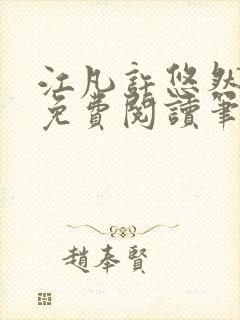 江凡許悠然
免費閱讀筆
趙奉賢